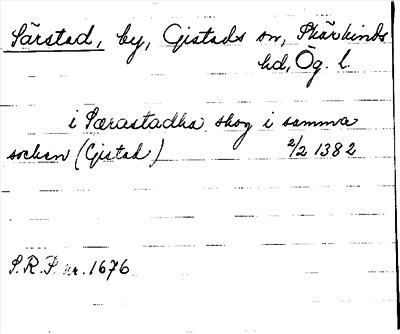 Särstad, by, Gistads sn, Skärkinds
hd, Ög. l.
i Særastadha skog i samma
socken (Gistad) 2/2 1382
S.R.P. nr. 1676